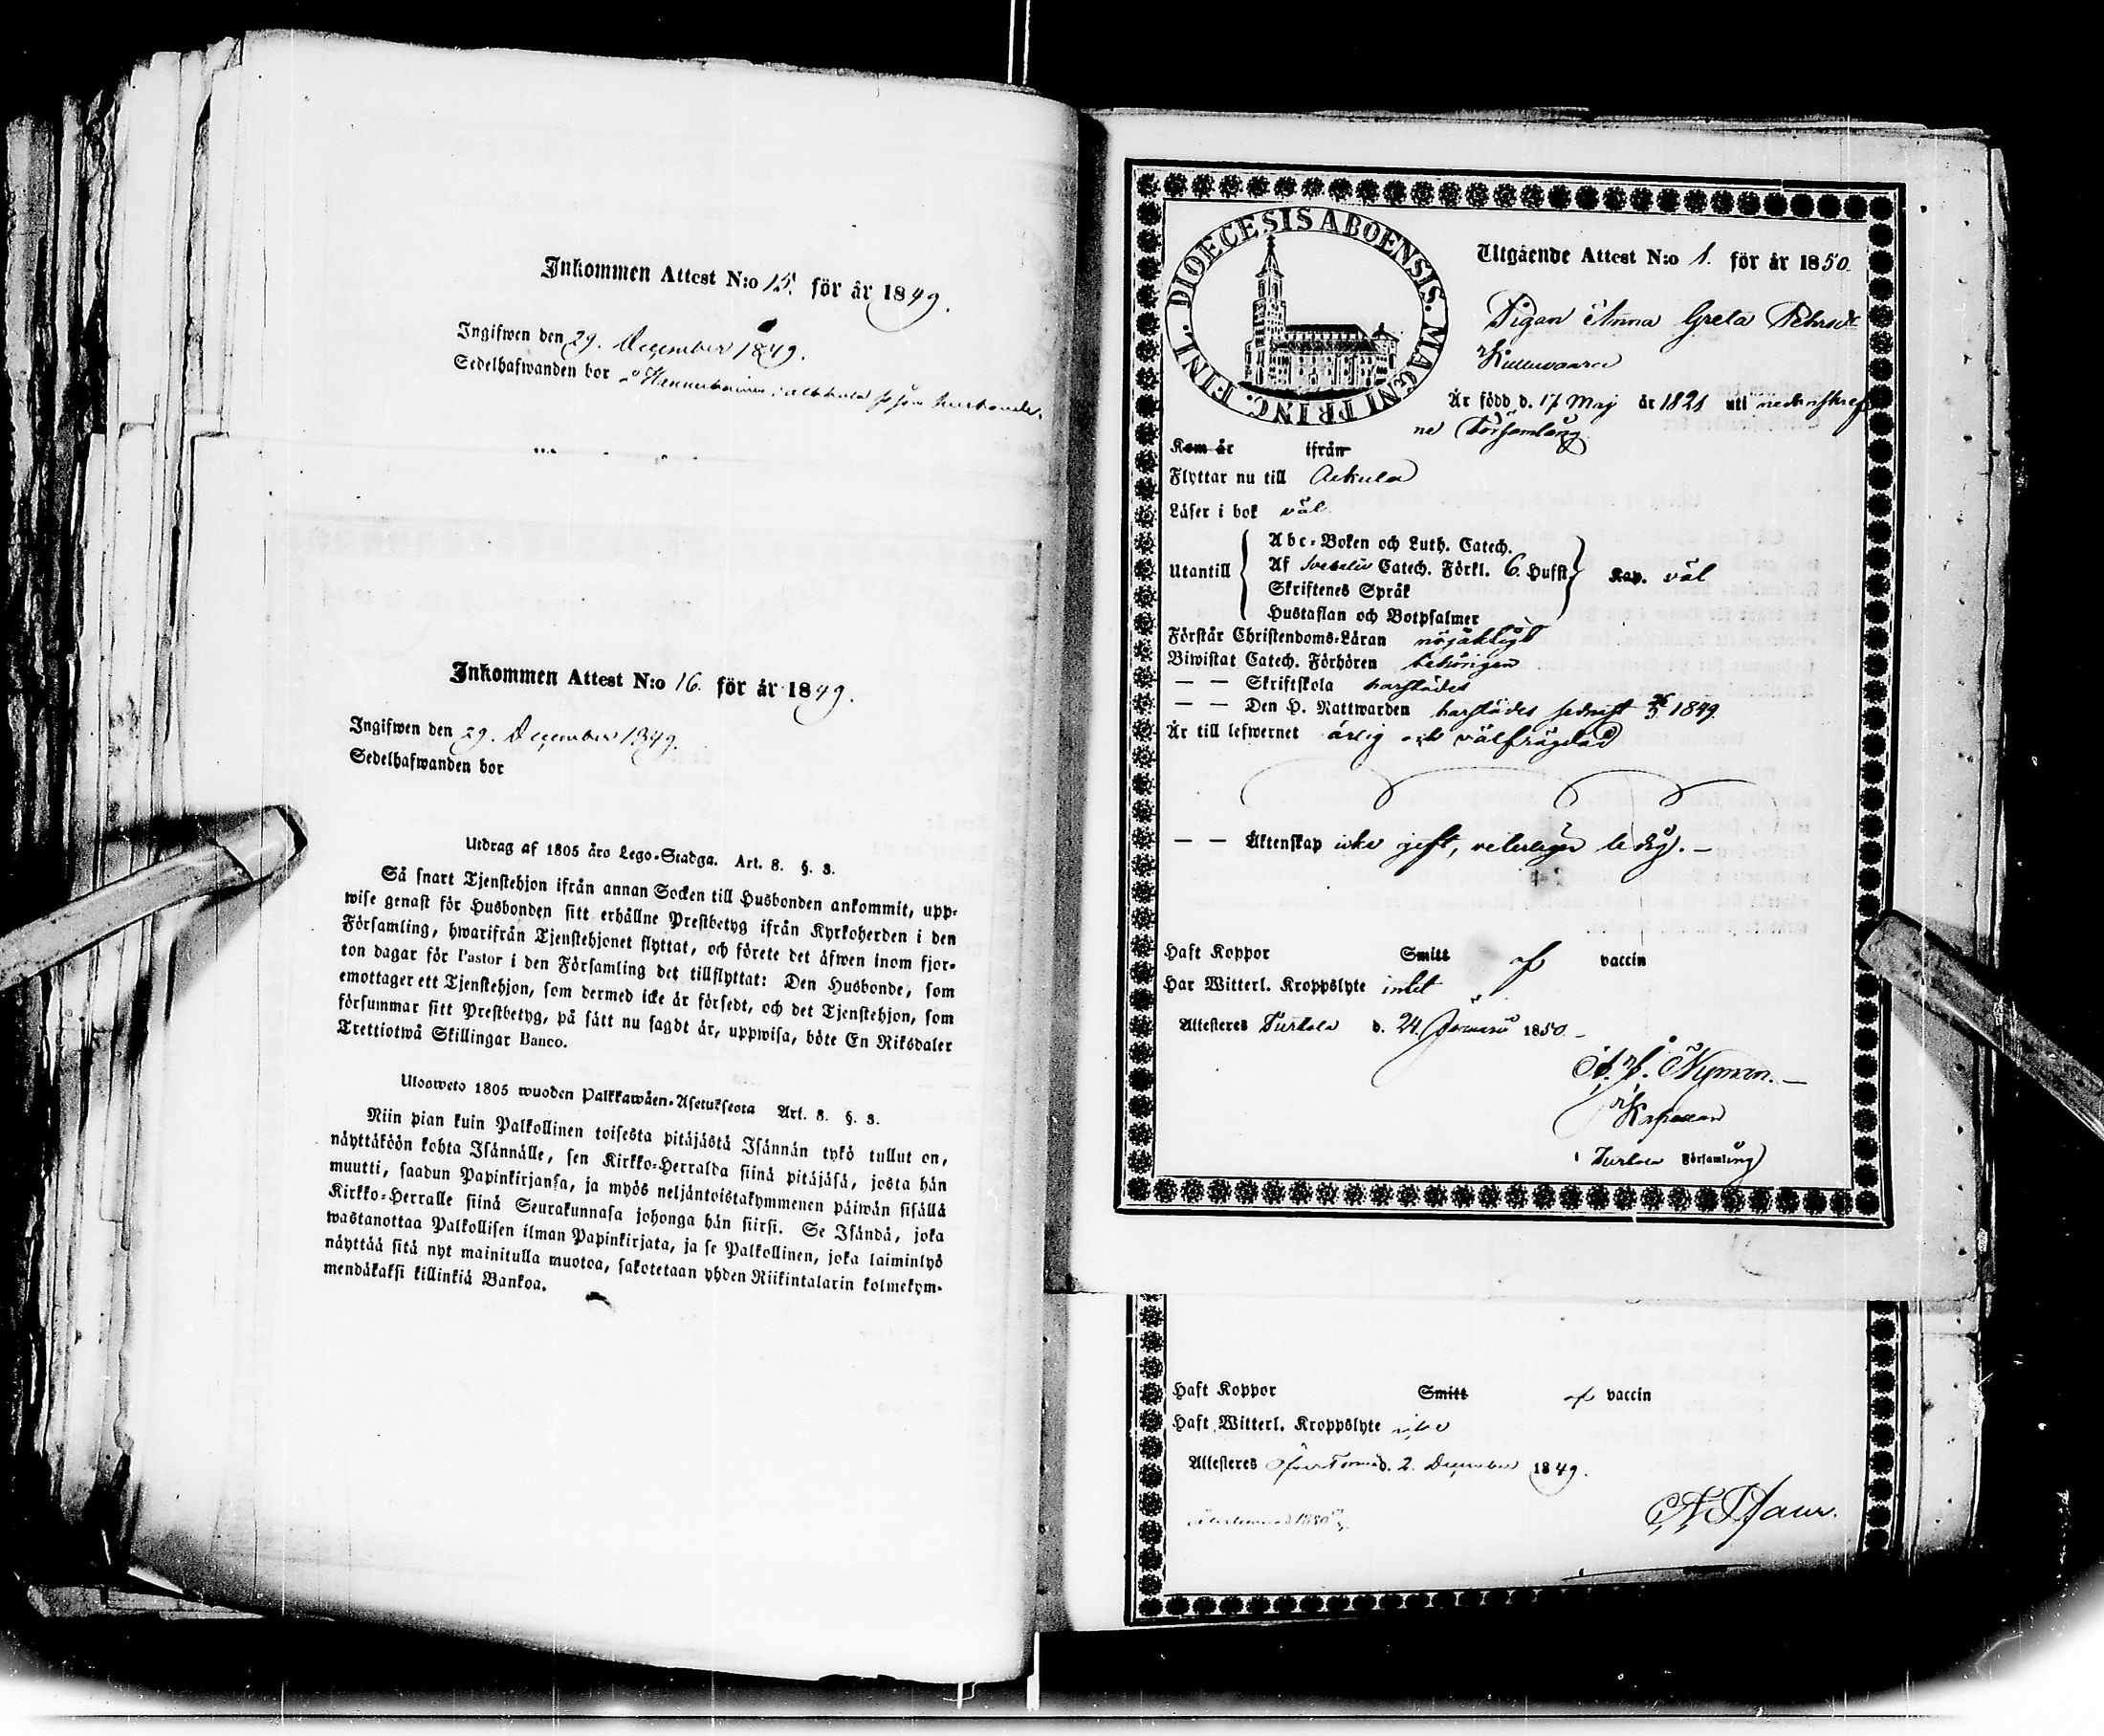 Inkommen Attest N:o 15. för år 1849.
Ingifwen den 29. December 1849.
Sedelhafwanden bor
Inkommen Attest N:o 16. för år 1849.
Ingifwen den 29. December 1849.
Sedelhafwanden bor
Utdrag af 1805 års Lego-Stadga. Art. 8. §. 3.
Så snart Tjenstehjon ifrån annan Socken till Husbonden ankommit, upp-
wise genast för Husbonden sitt erhållne Prestbetyg ifrån Kyrkoherden i den
Församling, hwarifrån Tjenstehjonet flyttat, och förete det äfwen inom fjor-
ton dagar för Pastor i den Församling det tillflyttat: Den Husbonde, som
emottager ett Tjenstehjon, som dermed icke är försedt, och det Tjenstehjon, som
försummar sitt Prestbetyg, på sätt nu sagdt är, uppwisa, böte En Riksdaler
Trettiotwå Skillingar Banco.
Ulosweto 1805 wuoden Palkkawäen-Asetuksesta Art. 8. §. 3.
Niin pian kuin Palkollinen toisesta pitäjästä Isännän tykö tullut on,
näyttäköön kohta Isännälle, sen Kirkko-Herralda siinä pitäjäsä, josta hän
muutti, saadun Papinkirjansa, ja myös neljäntoistakymmenen päiwän sisällä
Kirkko-Herralle siinä Seurakunnasa johonga hän siirsi. Se Isändä, joka
wastanottaa Palkollisen ilman Papinkirjata, ja se Palkollinen, joka laiminlyö
näyttää sitä nyt mainitulla muotoa, sakotetaan yhden Riikintalarin kolmekym-
mendäkaksi killinkiä Bankoa.
DIOECESIS ABOENSIS. MAGNI PRINC. FINL.
Utgående Attest N:o 1. för år 1850.
Pigan Anna Greta Pehrsdr
Är född d. 17 Maj år 1821 uti nedanskref
ne Församling
Kom år ifrån
Flyttar nu till
Läser i bok väl
Utantill
Abc-Boken och Luth. Catech.
Af Svebelii Catech. Förkl. 6. Hufst.
Skriftenes Språk
Hustaflan och Botpsalmer
Kap. väl
Förstår Christendoms-Läran nöjaktigt
Biwistat Catech. Förhören behörigen
— — Skriftskola
— — Den H. Nattwarden 1849.
Är till lefwernet ärlig och välfrägdad
— — Äktenskap icke gift, veterligen ledig. —
Haft Koppor Smitt af vaccin
Har Witterl. Kroppslyte intet
Attesteres Turtola d. 24. Januarii 1850 —
Nyman. —
Kapellan
i Turtola Församling
Haft Koppor Smitt af vaccin
Haft Witterl. Kroppslyte
Attesteres d. 2. December 1849.